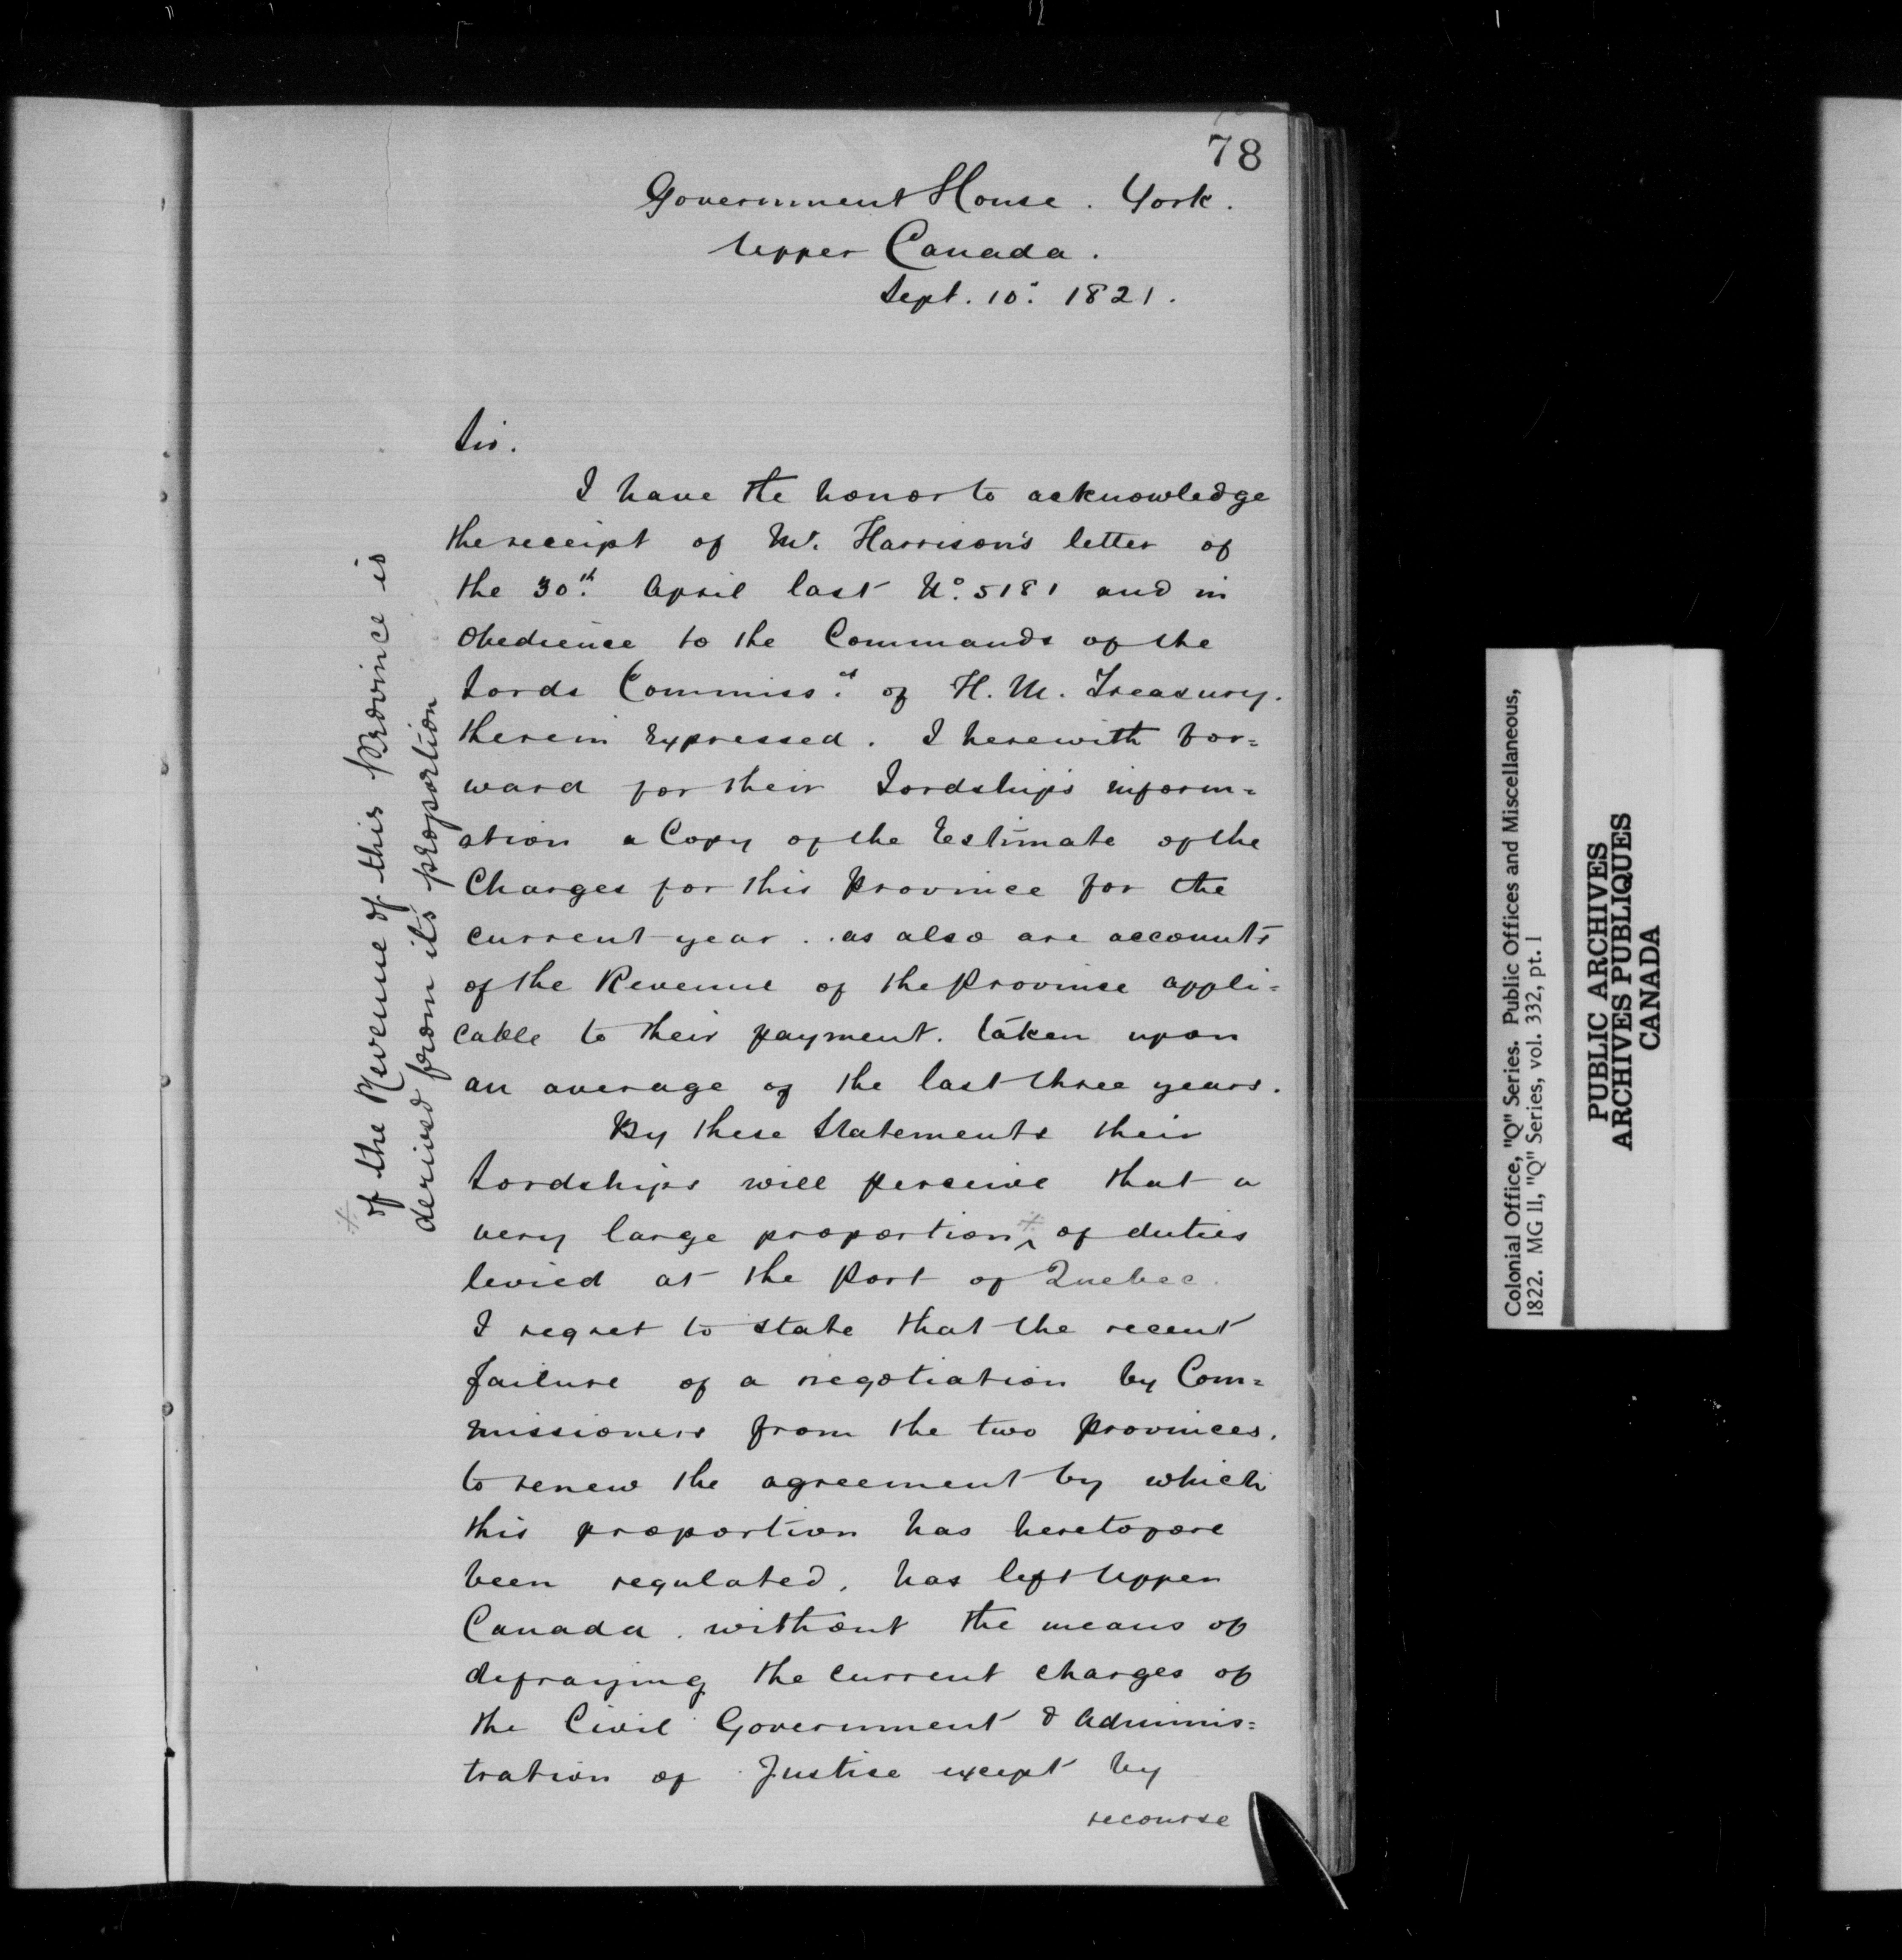 78
Government House. York.
Upper Canada.
Sept. 10. 1821.
Sir.
I have the honor to acknowledge
the receipt of Mr. Harrison's letter of
the 30th. April last No. 5181 and in
Obedience to the Commands of the
Lords Commiss.rs of H. M. Treasury.
therein expressed. I herewith for=
ward for their Lordships inform=
ation a Copy of the Estimate of the
Charges for this Province for the
current year. . as also are accounts
of the Revenue of the Province appli=
cable to their payment. taken upon
an average of the last three years.
By these Statements their
Lordships will perceive that a
very large proportion ^ of duties
levied at the Port of Quebec.
I regret to state that the recent
failure of a negotiation by Com=
missioners from the two provinces.
to renew the agreement by which
this proportion has heretofore
been regulated, has left Upper
Canada. without the means of
defraying the current charges of
the Civil Government & Adminis=
tration of Justice except by
recourse
of the Revenue of this Province is
derived from its proportion
Colonial Office, "Q" Series. Public Offices and Miscellaneous,
1822. MG 11, "Q" Series, vol. 332, pt. 1
PUBLIC ARCHIVES
ARCHIVES PUBLIQUES
CANADA